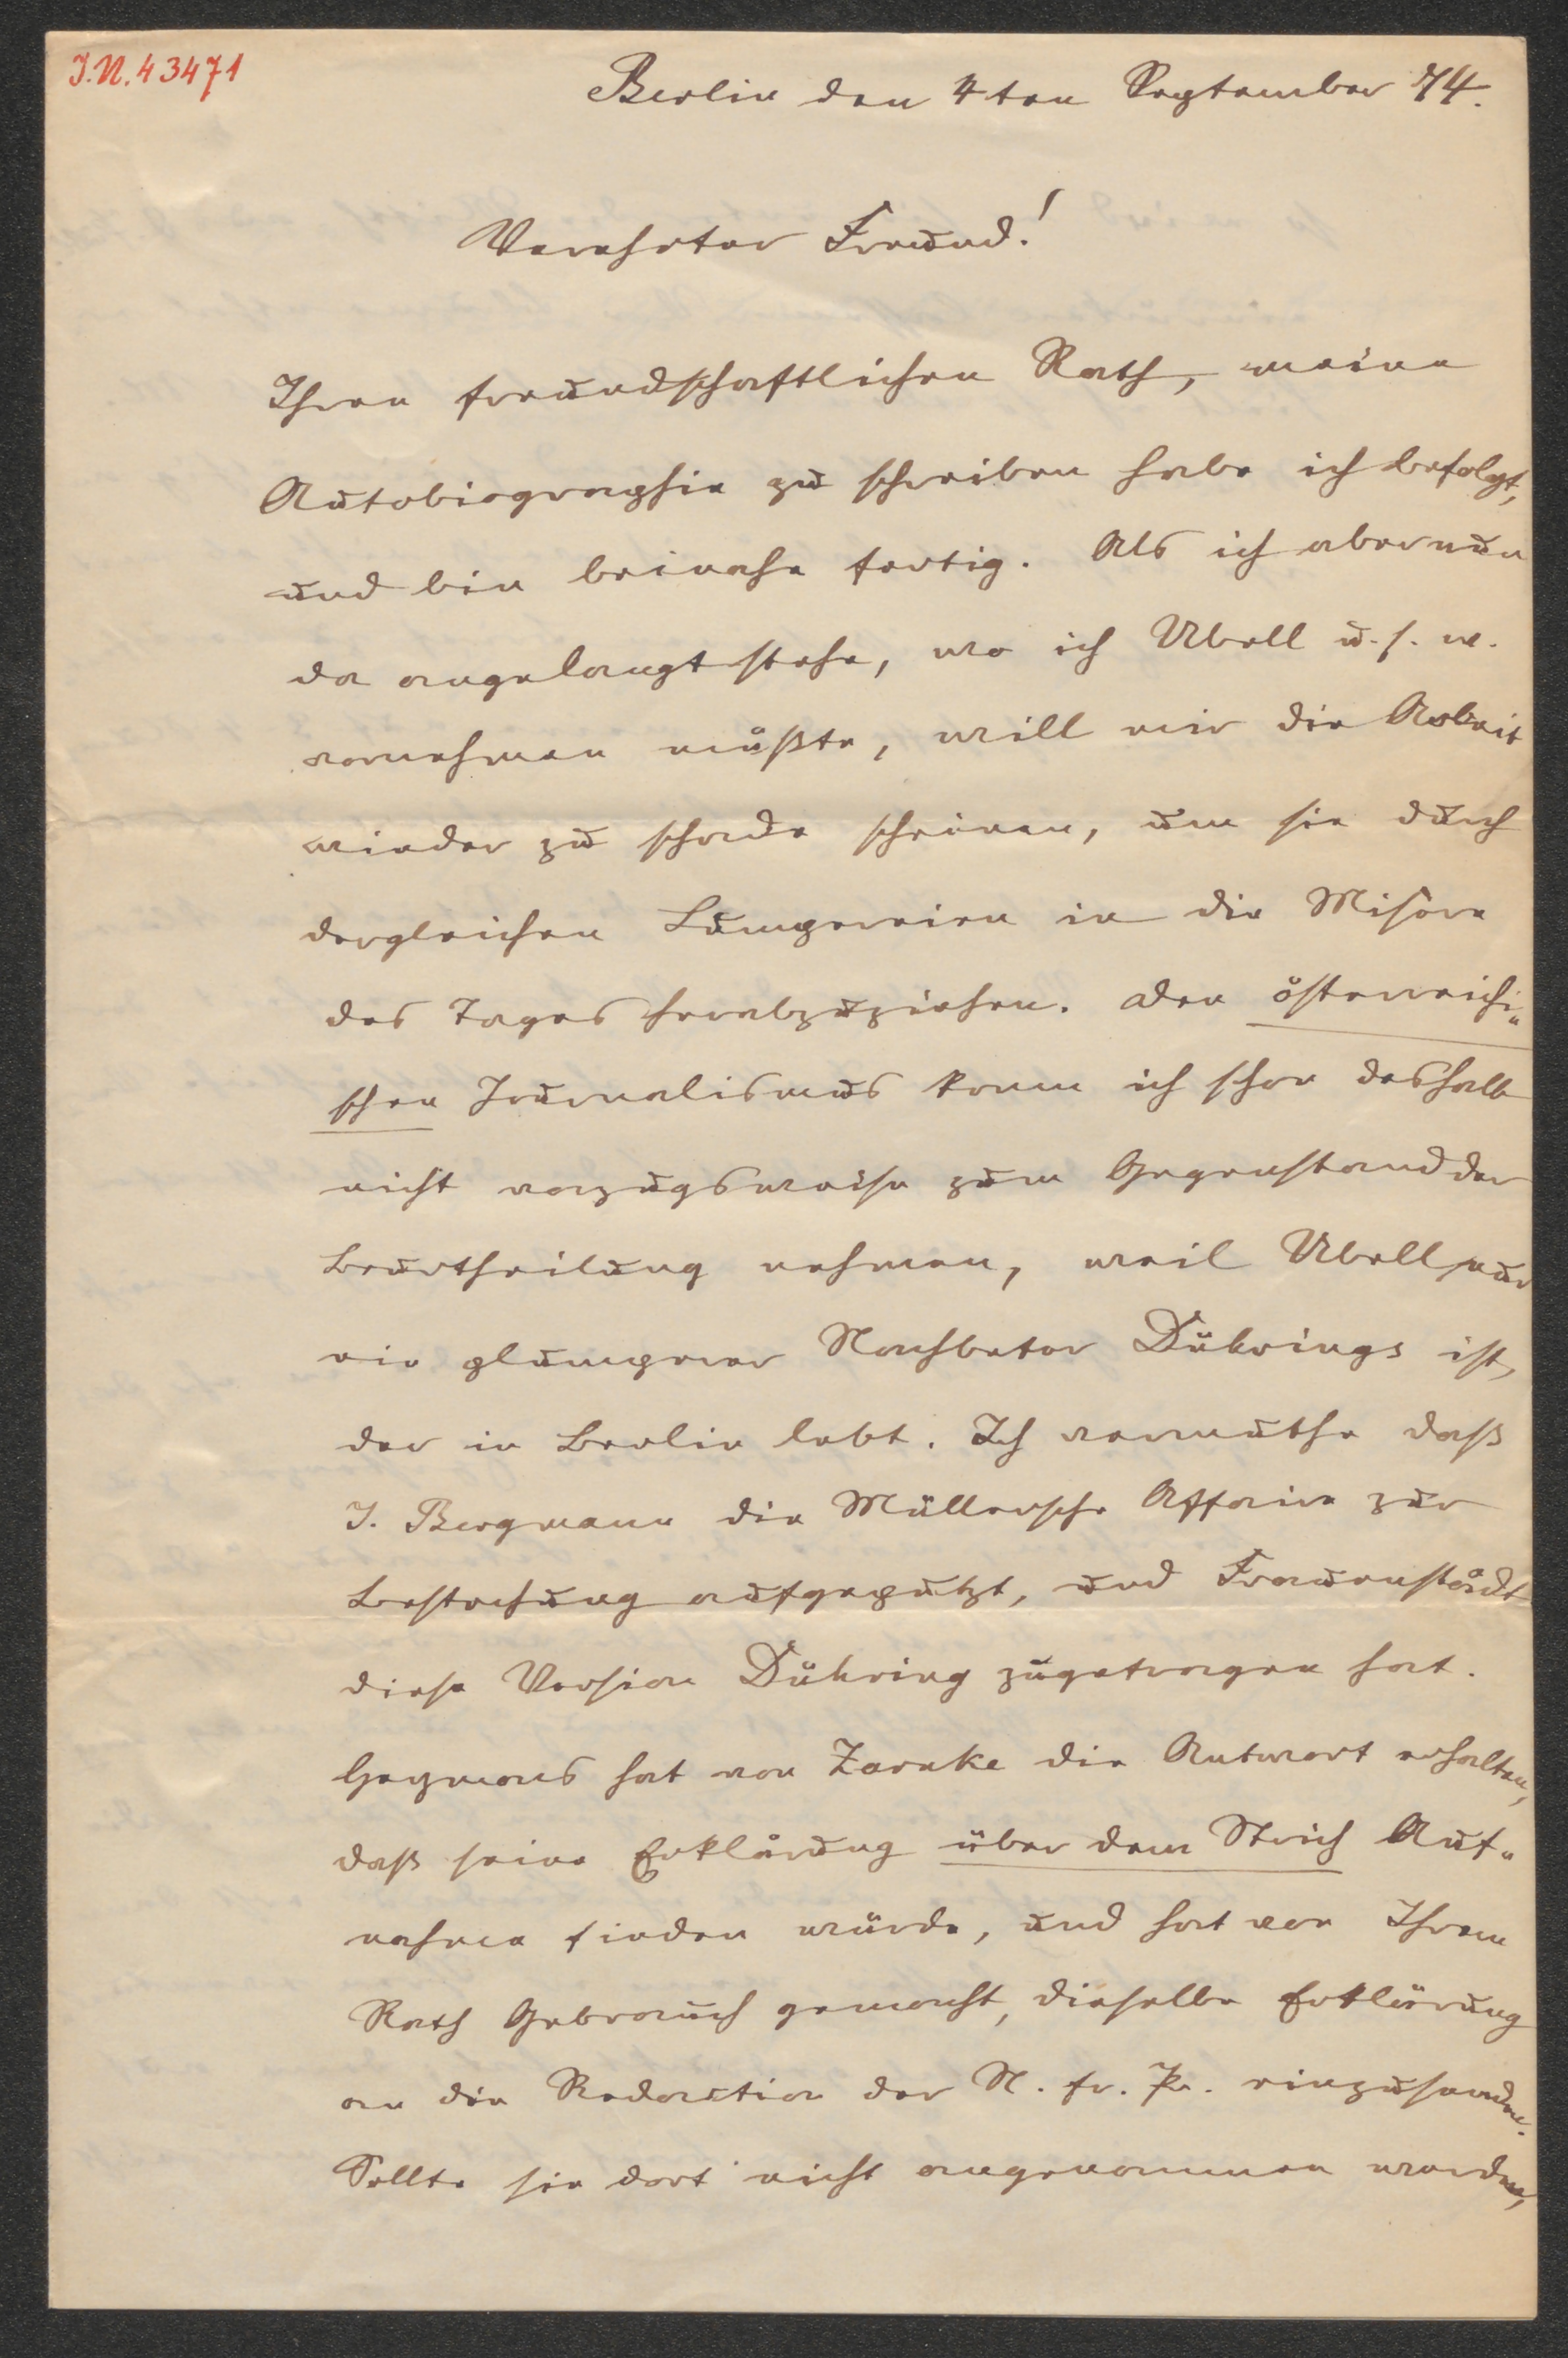 J.N. 43471
Berlin den 4ten September 74.
Verehrter Freund!
Ihren freundschaftlichen Rath, meine
Autobiographie zu schreiben habe ich befolgt,
und bin beinahe fertig. Als ich aber nun
da angelangt stehe, wo ich Ubell u. s. w.
vornehmen müßte, will mir die Arbeit
wieder zu schade scheinen, um sie durch
dergleichen Lumpereien in die Misère
des Tages herabzuziehen. Den österreichi„
schen Journalismus kann ich schon deshalb
nicht vorzugsweise zum Gegenstand der
Beurtheilung nehmen, weil Ubell nur
ein plumperer Nachbeter Dührings ist,
der in Berlin lebt. Ich vermuthe daß
J. Bergmann die Müllersche Affaire zur
Bestechung aufgeputzt, und Frauenstädt
diese Version Dühring zugetragen hat.
Heymons hat von Zarnke die Antwort erhalten,
daß seine Erklärung über dem Strich Auf„
nahme finden würde, und hat von Ihrem
Rath Gebrauch gemacht, dieselbe Erklärung
an die Redaction der N. fr. Pr. einzusenden.
Sollte sie dort nicht angenommen werden,